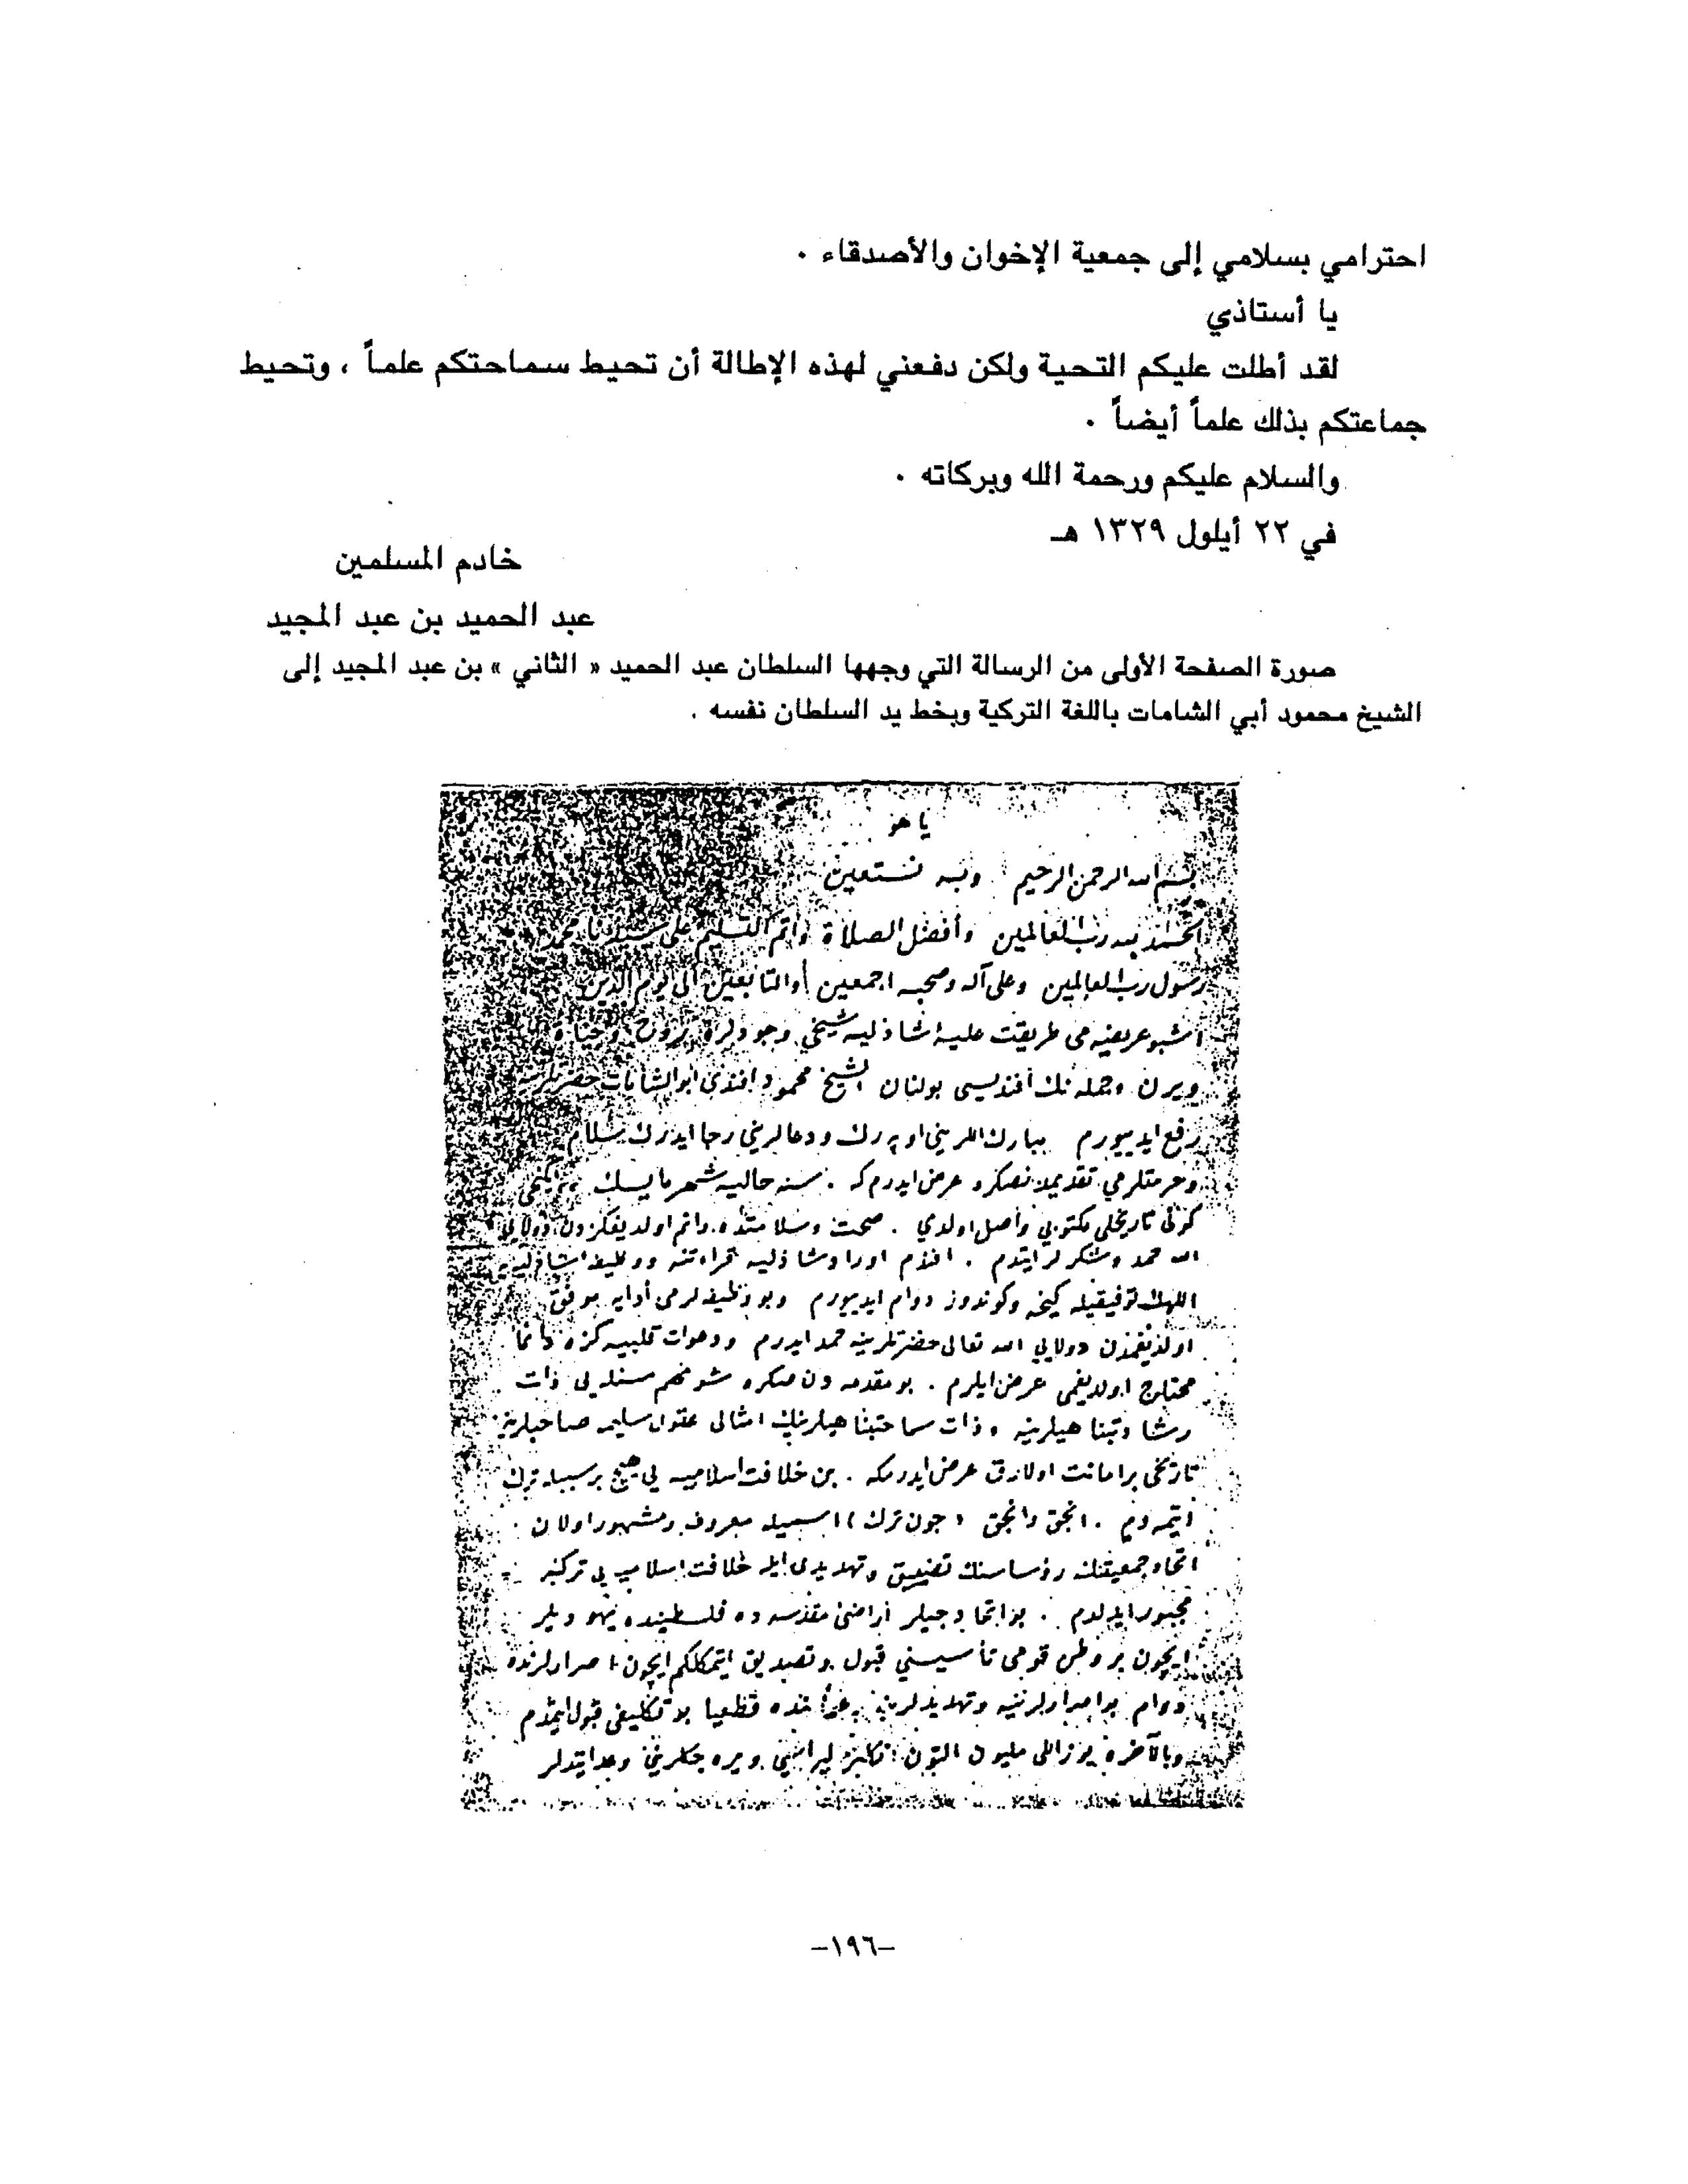 احترامي بسلامي إلى جمعية الإخوان والأصدقاء .
يا أستاذي
لقد أطلت عليكم التحية ولكن دفعني لهذه الإطالة أن تحيط سماحتكم علماً ، وتحيط
جماعتكم بذلك علماً أيضاً .
والسلام عليكم ورحمة الله وبركاته .
في ٢٢ أيلول ١٣٢٩ هـ
خادم المسلمين
عبد الحميد بن عبد المجيد
صورة الصفحة الأولى من الرسالة التي وجهها السلطان عبد الحميد « الثاني » بن عبد المجيد إلى
الشيخ محمود أبي الشامات باللغة التركية وبخط يد السلطان نفسه .
يا هو
بسم الله الرحمن الرحيم وبه نستعين
الحمد لله رب العالمين وأفضل الصلاة وأتم التسليم على سيدنا محمد
رسول رب العالمين وعلى آله وصحبه اجمعين والتابعين الى يوم الدين
اشبو عريضه مى طريقت عليه شاذليه شيخى وجودلره روح وحياة
ويرن وجمله نك افنديسى بولنان الشيخ محمود افندى ابو الشامات حضرتلرينه
رفع ايدييورم مبارك اللريني اوپه رك ودعالريني رجا ايدرك سلام
وحرمتلرمي تقديمدنصكره عرض ايدرم كه . سنه حاليه شهر مايسك
كونى تاريخلى مكتوبي واصل اولدي . صحت وسلامتده دائم اولديغكزدن دولايي
الله حمد وشكرلر ايتدم . افندم اوراد شاذليه قراءتنه ووظيفه شاذليه يه
اللهك توفيقيله كيجه وكوندوز دوام ايدييورم وبو وظيفه لرمى أدايه موفق
اولديغمدن دولايي الله تعالى حضرتلرينه حمد ايدرم ودعوات قلبيه كزه دائما
محتاج اولديغمى عرض ايلرم . بو مقدمه دن صكره شو مهم مسئله يى ذات
رشادتپناهيلرينه وذات سماحتپناهيلرينك امثالى عقول سليمه صاحبلرينه
تاريخى بر امانت اولارق عرض ايدرمكه . بن خلافت اسلاميه يى هيچ بر سببله ترك
ايتمه دم . انجق وانجق (جون ترك) اسميله معروف ومشهور اولان
اتحاد جمعيتنك رؤساسنك تضييق وتهديدى ايله خلافت اسلاميه يى تركه
مجبور ايدلدم . بو اتحادجيلر اراضئ مقدسه ده فلسطينده يهوديلر
ايچون بر وطن قومى تأسيسني قبول وتصديق ايتمكلكم ايچون اصرارلرنده
دوام بو اصرارلرينه وتهديدلرينه رغماً بنده قطعيا بو تكليفى قبول ايتمدم
وبالآخره يوز اللى مليون التون انكليز ليراسى ويره جكلريني وعد ايتديلر
-١٩٦-